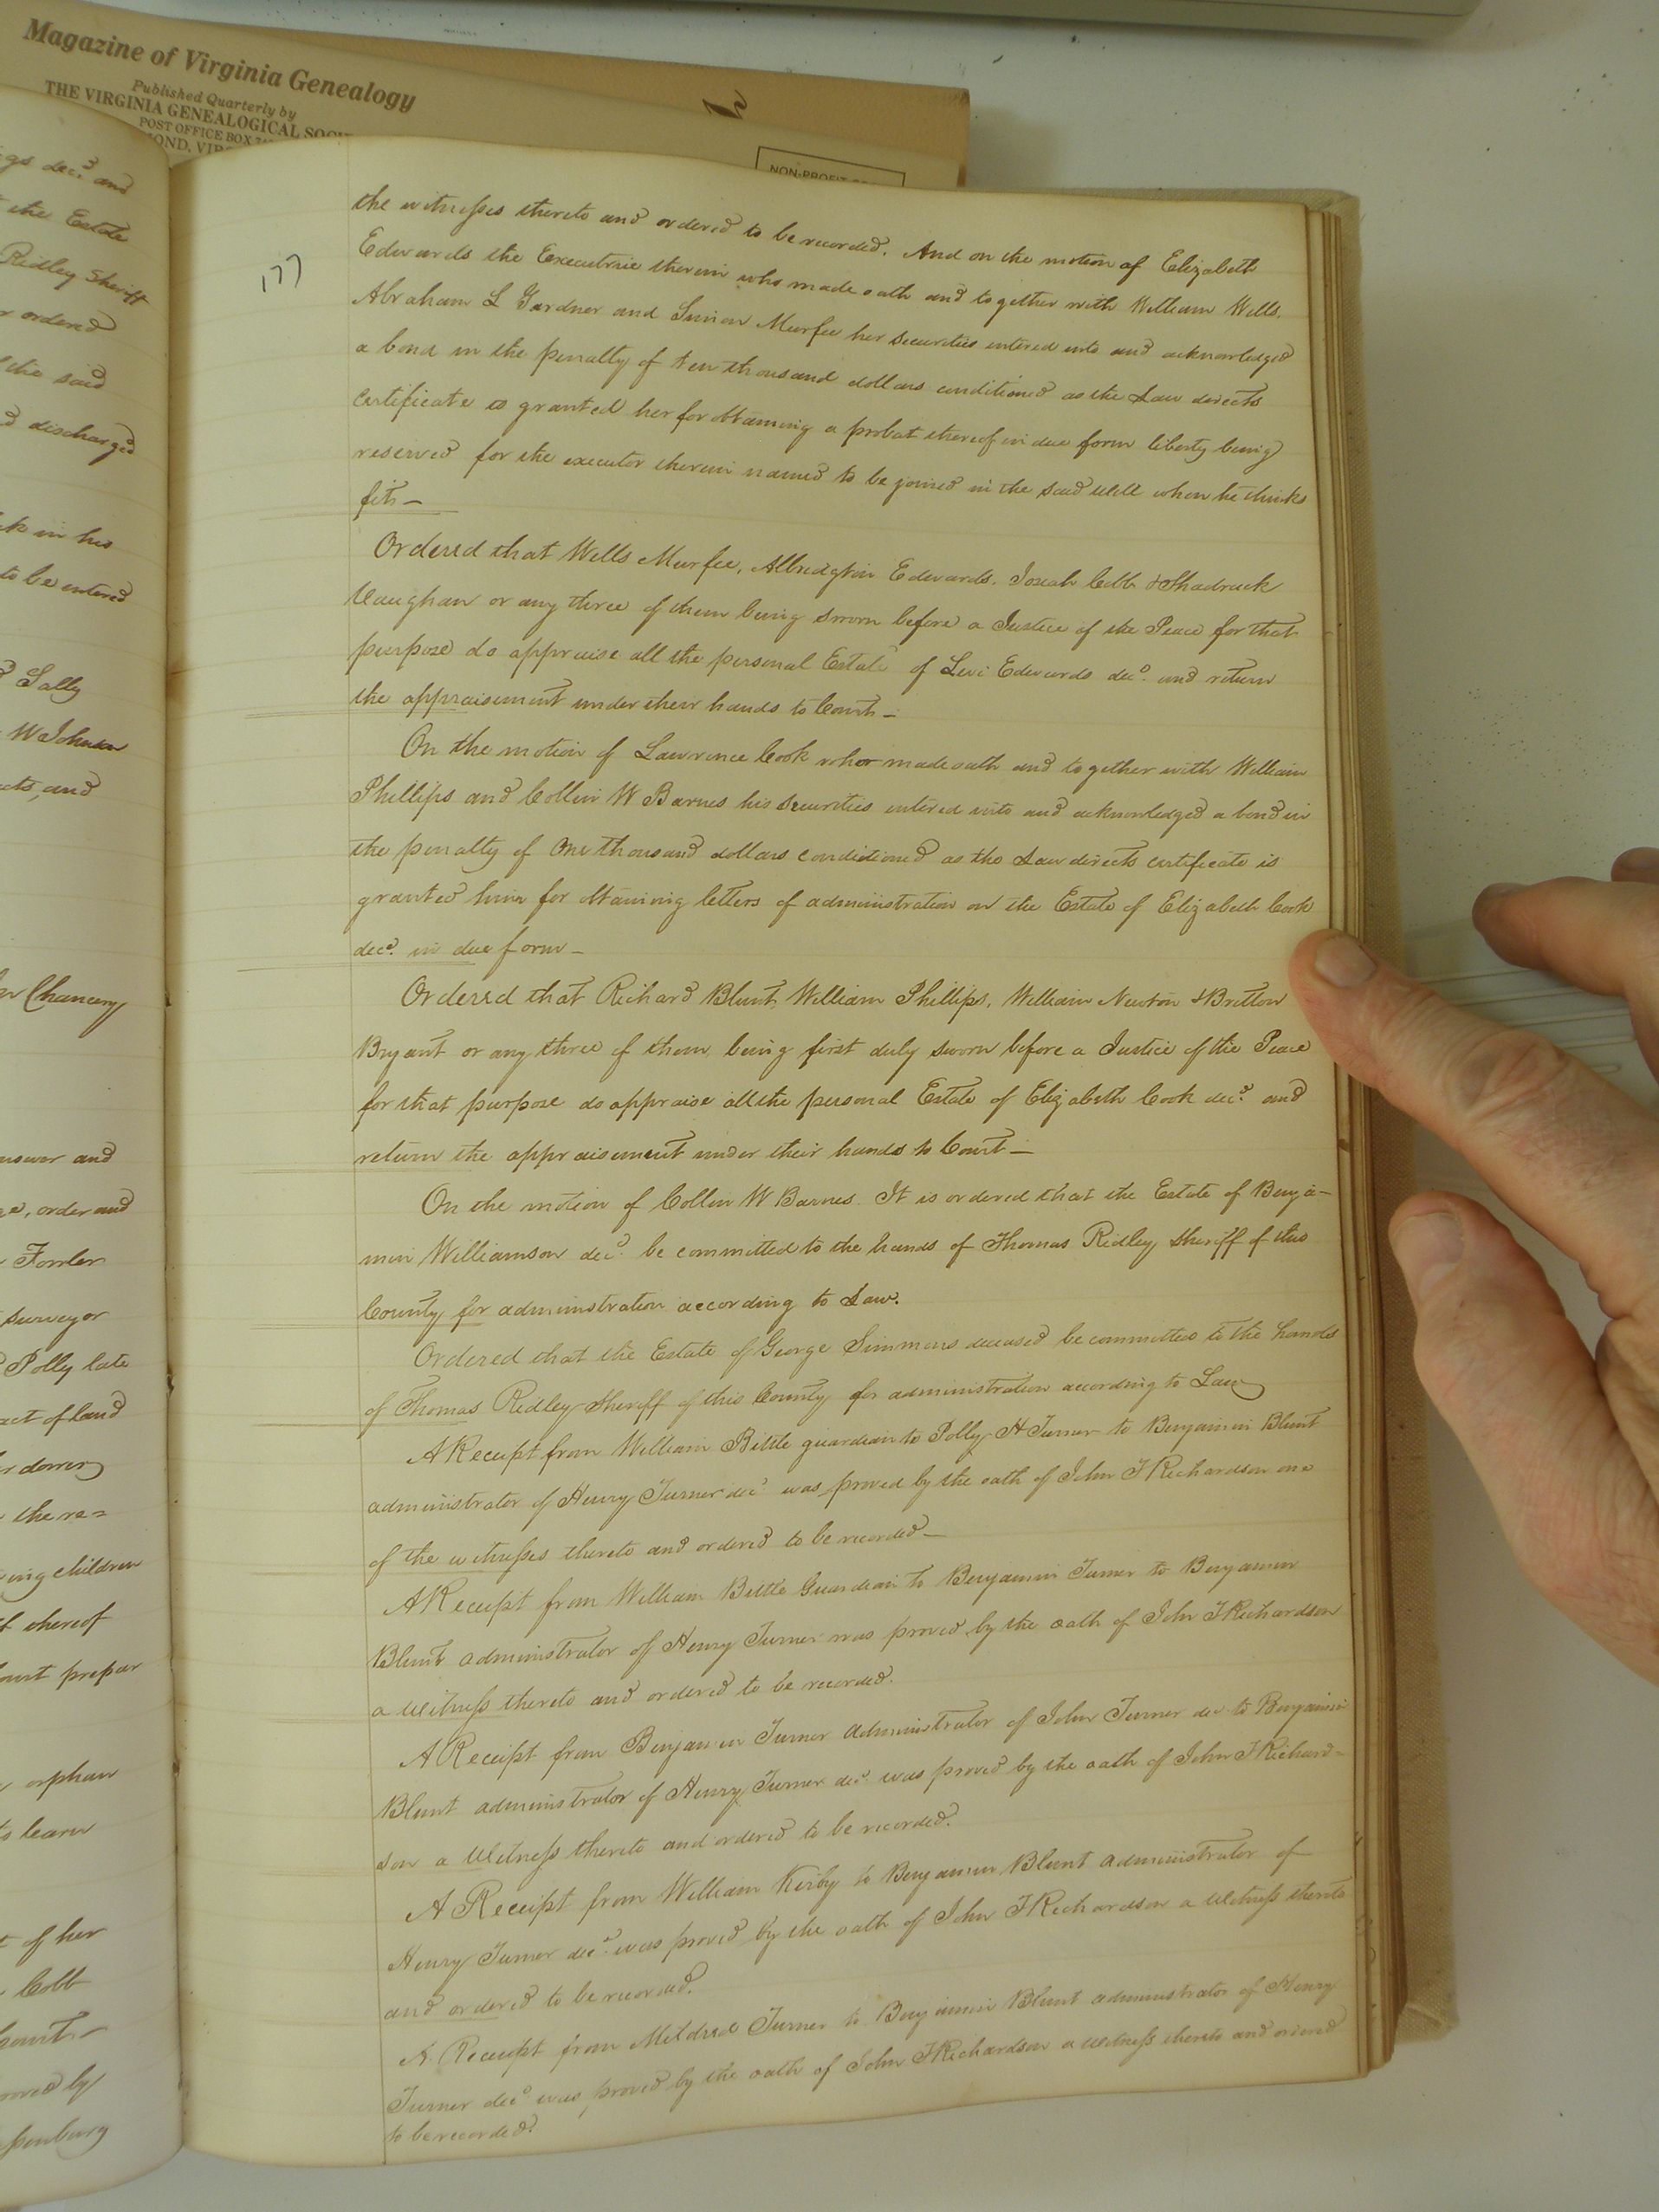 Magazine of Virginia Genealogy
Published Quarterly by
THE VIRGINIA GENEALOGICAL SOCI
POST OFFICE BOX
OND, VIR
NON-PROFIT
gs decd and
the Estate
Ridley Sheriff
ordered
the said
discharged
k in his
to be entered
Sally
W Johnson
cts, and
Chancery
nswer and
e, order and
Fowler
surveyor
Polly late
act of land
dower
the re=
ing children
thereof
ourt prepar
orphan
to learn
t of her
Cobb
Court -
proved by
177
the witnesses thereto and ordered to be recorded. And on the motion of Elizabeth
Edwards the Executrix therein who made oath and together with William Wells.
Abraham L Gardner and Simon Murfee her securities entered into and acknowledged
a bond in the penalty of ten thousand dollars conditioned as the Law directs
Certificate is granted her for obtaining a probat thereof in due form liberty being
reserved for the executor therein named to be joined in the said Will when he thinks
fit -
Ordered that Wells Murfee, Albridgton Edwards, Josiah Cobb & Shadrack
Vaughan or any three of them being sworn before a Justice of the Peace for that
purpose do appraise all the personal Estate of Levi Edwards decd. and return
the appraisement under their hands to Court -
On the motion of Lawrence Cook who made oath and together with William
Phillips and Collin W Barnes his securities entered into and acknowledged a bond in
the penalty of One thousand dollars conditioned as the Law directs certificate is
granted him for obtaining letters of administration on the Estate of Elizabeth Cook
decd. in due form -
Ordered that Richard Blunt, William Phillips, William Newton & Britton
Bryant or any three of them being first duly sworn before a Justice of the Peace
for that purpose do appraise all the personal Estate of Elizabeth Cook decd. and
return the appraisement under their hands to Court -
On the motion of Collin W Barnes. It is ordered that the Estate of Benja-
min Williamson decd. be committed to the hands of Thomas Ridley Sheriff of this
County for administration according to Law.
Ordered that the Estate of George Simmons deceased be committed to the hands
of Thomas Ridley Sheriff of this County for administration according to Law
A Receipt from William Bittle guardian to Polly H Turner to Benjamin Blunt
administrator of Henry Turner decd was proved by the oath of John T Richardson one
of the witnesses thereto and ordered to be recorded -
A Receipt from William Bittle Guardian to Benjamin Turner to Benjamin
Blunt administrator of Henry Turner was proved by the oath of John T Richardson
a Witness thereto and ordered to be recorded.
A Receipt from Benjamin Turner administrator of John Turner dec to Benjamin
Blunt administrator of Henry Turner decd. was proved by the oath of John T Richard=
son a Witness thereto and ordered to be recorded.
A Receipt from William Kirby to Benjamin Blunt administrator of
Henry Turner decd. was proved by the oath of John T Richardson a Witness thereto
and ordered to be recorded.
A Receipt from Mildred Turner to Benjamin Blunt administrator of Henry
Turner decd was proved by the oath of John T Richardson a Witness thereto and ordered
to be recorded.